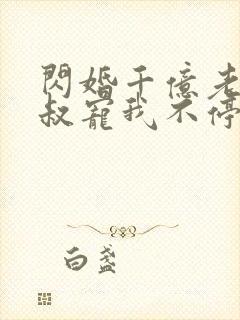 閃婚千億老
叔寵我不停
白盞